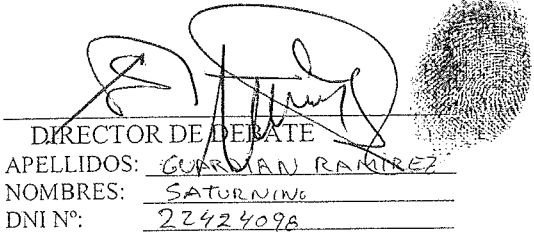 DIRECTOR DE DEBATE
APELLIDOS: GUARMAN RAMIREZ
NOMBRES: SATURNINO
DNI Nº: 22424098